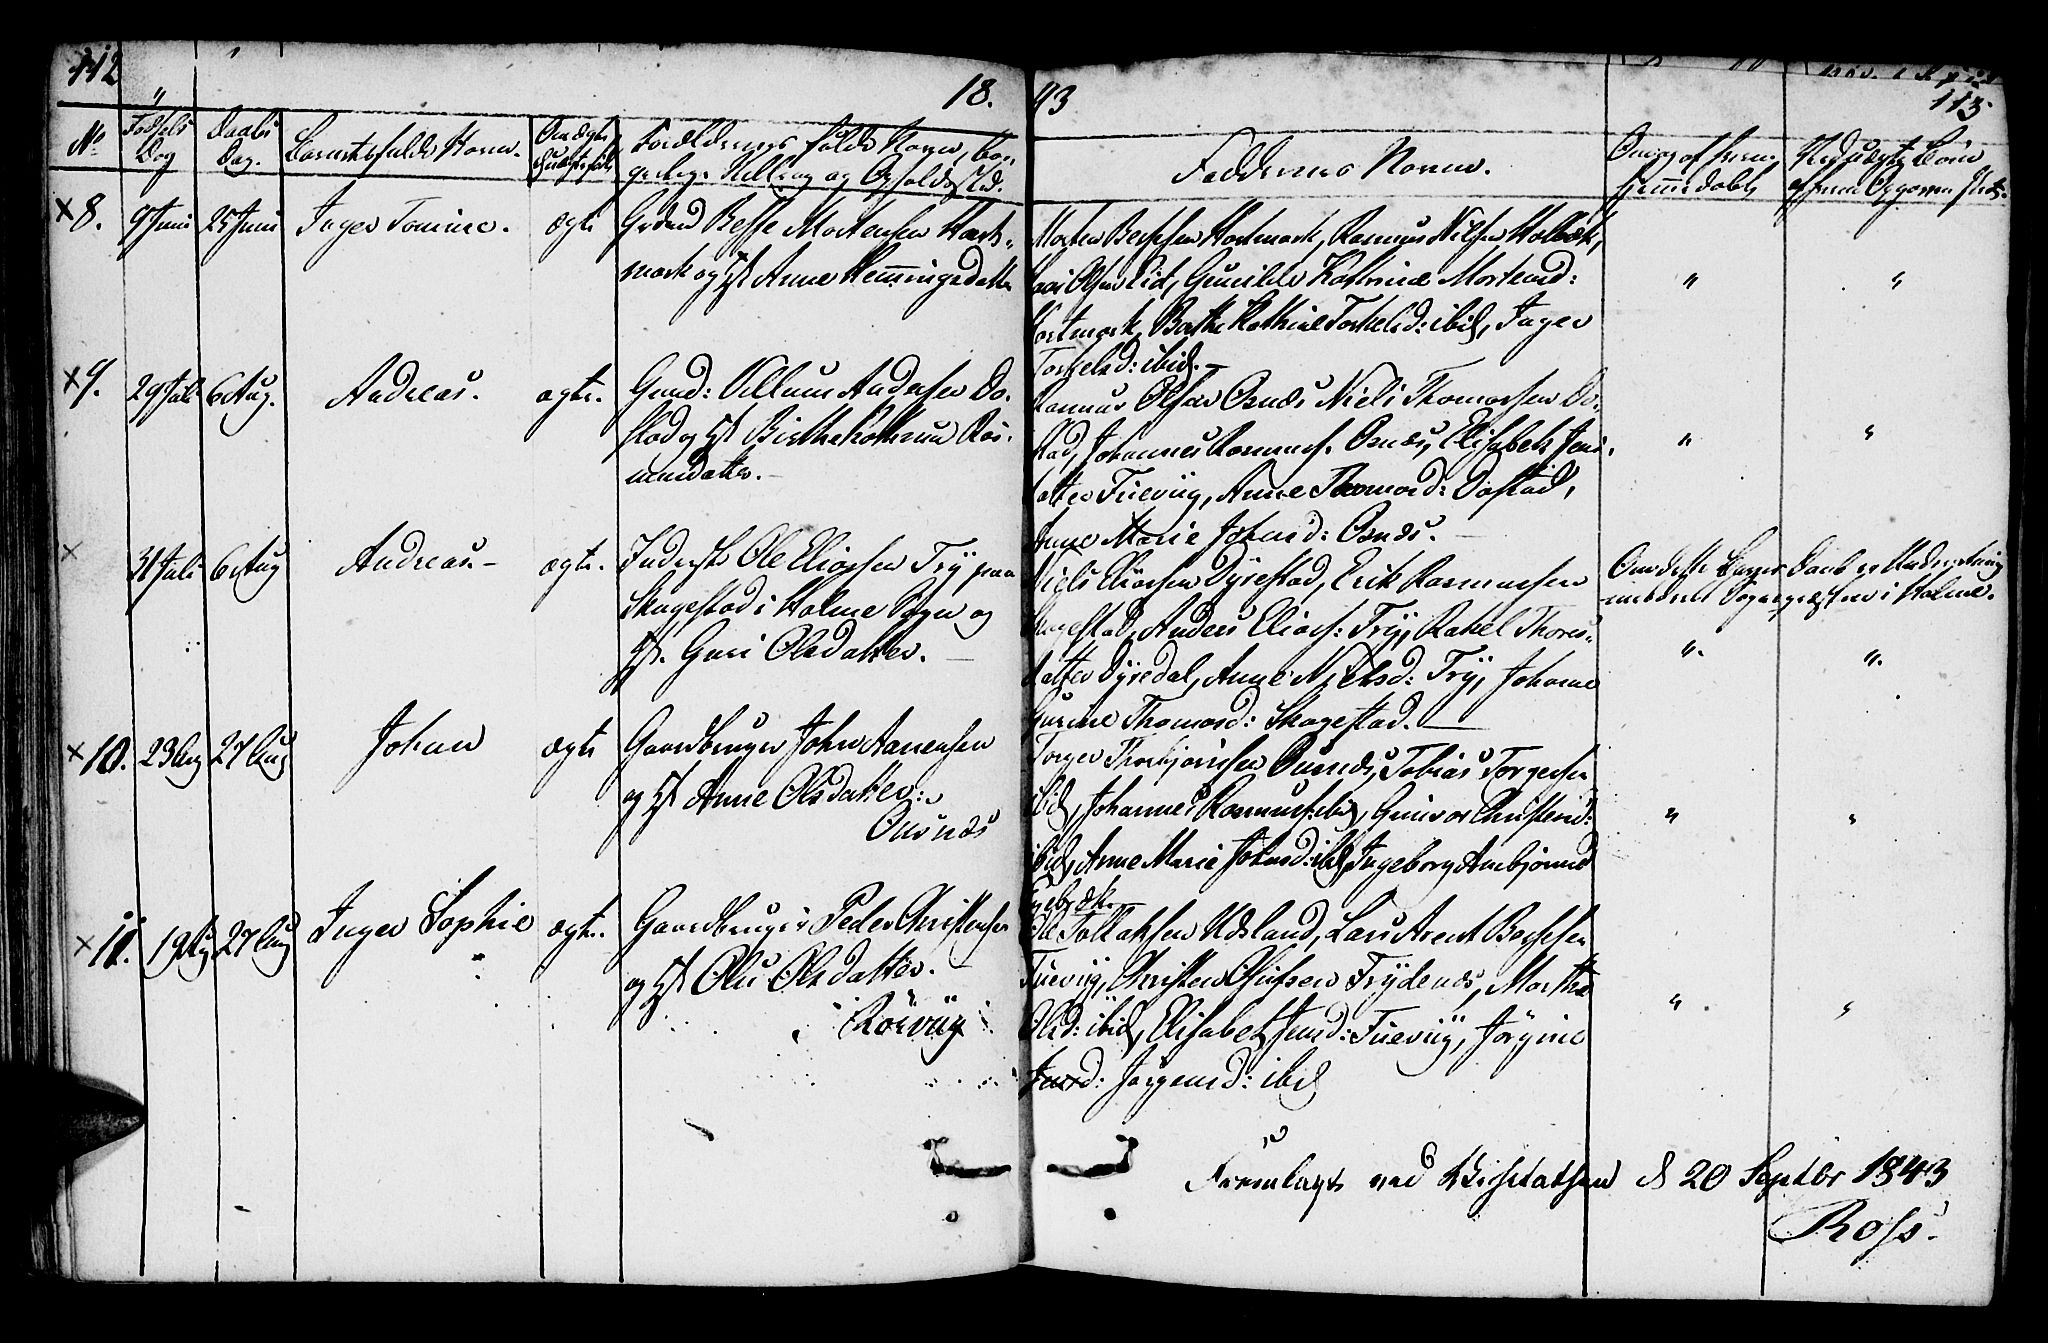 112
18.
43
113
No
Fødsels Dag
Daabs Dag.
Barnets fulde Navn.
Om ægte
Forældrenes fulde Navn, Bor-
gerlige Stilling og Opholdssted.
Faddernes Navne.
8.
9 Juni
25 Juni
Inger Tomine.
ægte
Grdmd Besse Mortensen Hart-
mark og Hst Anne Henningsdatter
Morten Bessesen Hartmark, Rasmus Nilsen Holbæk,
Olsen Eid, Gunilde Kathrine Mortensd:
Hartmark, Berthe Kathrine Torkelsd: ibid, Inger
Torkelsd: ibid.
9.
29 Juli
6 Aug.
Andreas.
ægte.
Gmd: Villum Andersen Do-
stad og Hst Birthe Kathrine Ras-
musdatter.
Rasmus Olsen Osnæs Niels Thomassen Do-
stad, Johannes Rasmuss. Osnæs, Elisabeth Jens-
datter Tueviig, Anne Thomasd: Dostad,
Anne Marie Johnsd: Osnæs.
31 Juli
6 Aug
Andreas.
ægte.
Inderst Ole Eliassen Try paa
Skagestad i Holme Sogn og
Hst. Guri Olsdatter.
Niels Eliassen Dyrestad, Erik Rasmussen
Skagestad, Anders Eliass: Try, Rakel Thores-
datter Dyredal, Anne Nielsd: Try, Johanne
Gurine Thomasd: Skagestad.
Om dette Barns Daab er Underretning
meddelt Sognepræsten i Holme.
10.
23 Aug
27 Aug
Johan
ægte
Gaardbruger John Aanensen
og Hst Anne Olsdatter
Ousnæs
Torger Thorbjørnsen Ousnæs, Tobias Torgersen
ibid, Johannes Rasmuss: ibid, Gunvor Christensd:
ibid, Anne Marie Johnsd: ibid, Ingeborg Anbjørnsd
11.
19 Aug
27 Aug
Inger Sophie
ægte.
Gaardbruger Peder Christensen
og Hst Olu Olsdatter.
Rørviig
Ole Tallaksen Udsland, Lars Arent Bessesen
Tuevig, Christen Olufsen Frydenæs, Marthe
Olsd: ibid, Elisabet Jensd: Tueviig, Jørgine
Jensd: Jørgensd: ibid
Fremlagt ved Visitatsen d 20 Septbr 1843
Ross.